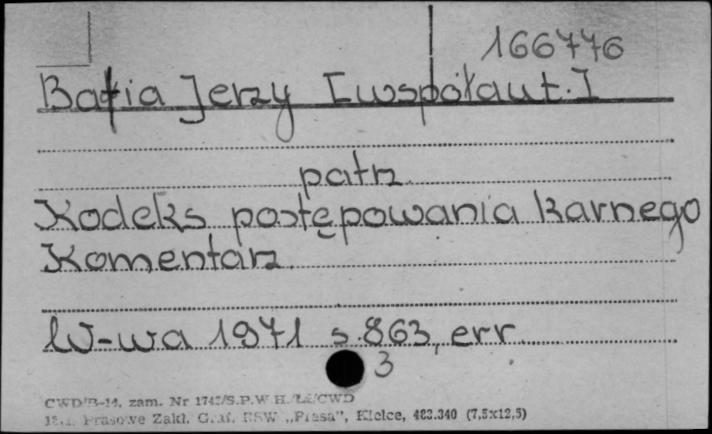 166776
Bafia Jerzy [współaut.]
patrz
Kodeks postępowania karnego
Komentarz
W-wa 1971 s. 863, err.
3
CWD/B-14, zam. Nr /S.P.W.H. /CWD
Prasowe Zakł. Graf. RSW „Prasa", Kielce, 483.340 (7,5x12,5)